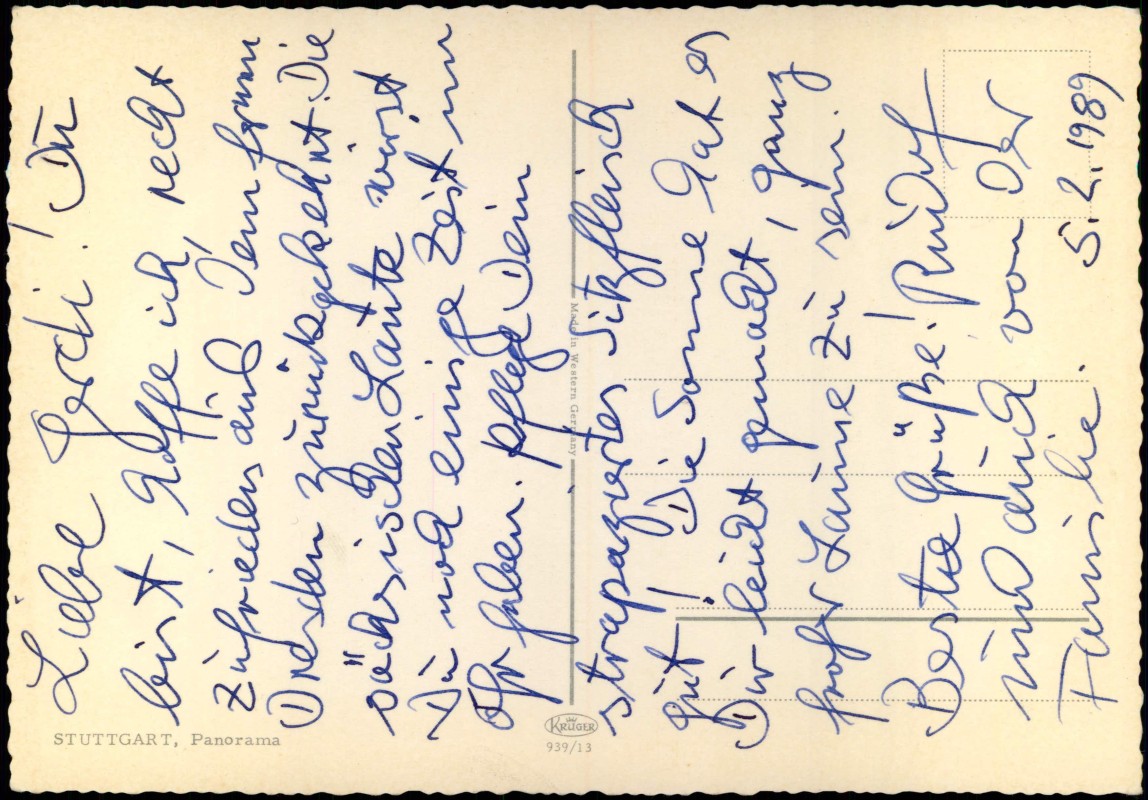 Liebe Gerdi! Du
bist, hoffe ich, recht
zufrieden aus Dem fernen
Dresden zurückgekehrt. Die
sächsischen Laute wirst
Du noch einige Zeit im
Ohr haben. Pflege Dein
strapaziertes Sitzfleisch
gut! Die Sonne hat es
Dir leicht gemacht, ganz
froher Laune zu sein.
Beste Grüße! Rudolf
und auch von Der
Familie. 5.2.1989
STUTTGART, Panorama
KRÜGER
939/13
Made in Western Germany